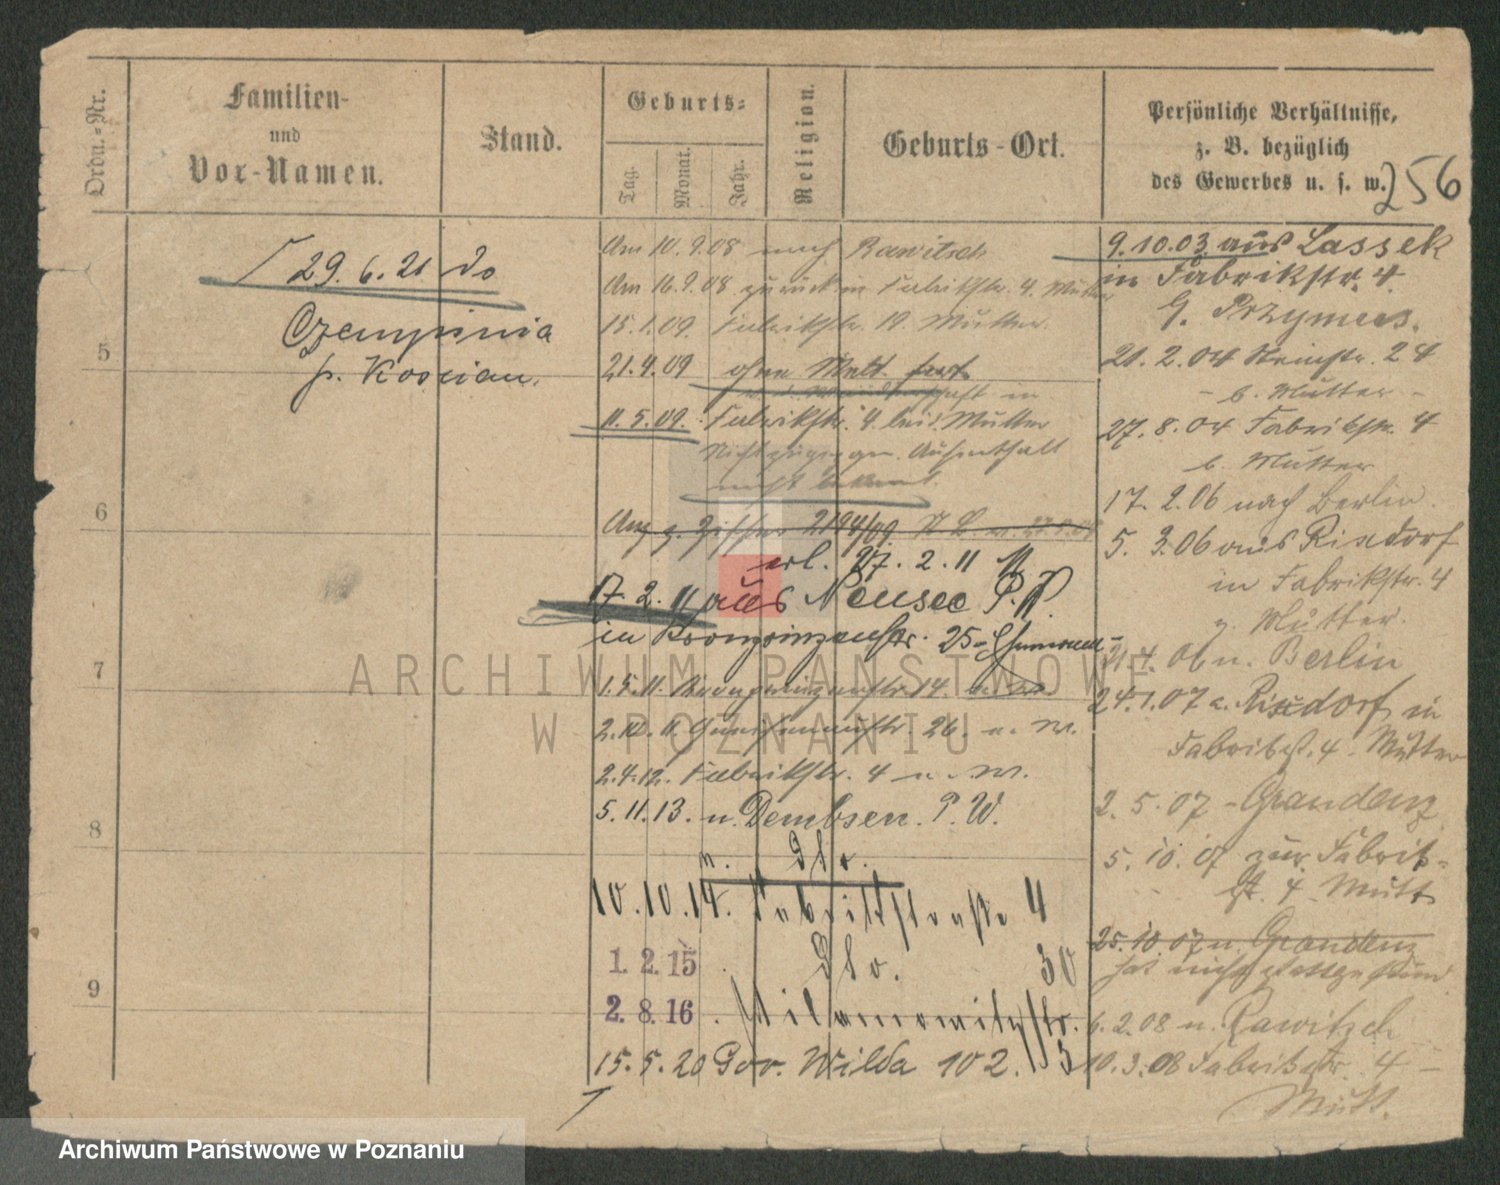 Ordn.-Nr.
Familien-
und
Vor-Namen.
Stand.
Geburts-
Tag.
Monat.
Jahr.
Religion.
Geburts-Ort.
Persönliche Verhältnisse,
z. B. bezüglich
des Gewerbes u. s. w.
256
29.6.21 do
Czempinia
p. Koscian.
5
6
7
8
9
Am 10.9.08 nach Rawitsch
Am 16.9.08 zurück in Fabrikstr. 4. Mutter
15.1.09. Fabrikstr. 19. Mutter.
21.4.09 ohne Meld. fort
in
11.5.09. Fabrikstr. 4 bei d. Mutter
Aufenthalt
nicht bekannt.
2194/09.
erl. 27.2.11
17.2.11 aus Neusee P.
in Kronprinzenstr. 25
1.5.11. Kronprinzenstr. 14.
2.10.11. Gneisenaustr. 26. u. M.
2.4.12. Fabrikstr. 4 u. M.
5.11.13. n. Dembsen. P. W.
10.10.14. Fabrikstraße 4
1.2.15 Glo. 30
2.8.16. Wilamowitzstr. 5
15.5.20 Gor. Wilda 102.
9.10.03. aus Lassek
in Fabrikstr. 4.
20.2.04 Steinstr. 24
- b. Mutter -
27.8.04 Fabrikstr. 4
b. Mutter
17.2.06 nach Berlin.
5.3.06 aus Rixdorf
in Fabrikstr. 4
z. Mutter.
21.4.06 n. Berlin
24.1.07 a. Rixdorf in
Fabrikst. 4. Mutter
2.5.07 - Graudenz
5.10.07 zur. Fabrik-
st. 4. Mutt
25.10.07 n. Graudenz
hat nicht stattgefund.
6.2.08 n. Rawitsch
10.3.08 Fabrikstr. 4 -
Mutt.
ARCHIWUM PAŃSTWOWE
W POZNANIU
Archiwum Państwowe w Poznaniu